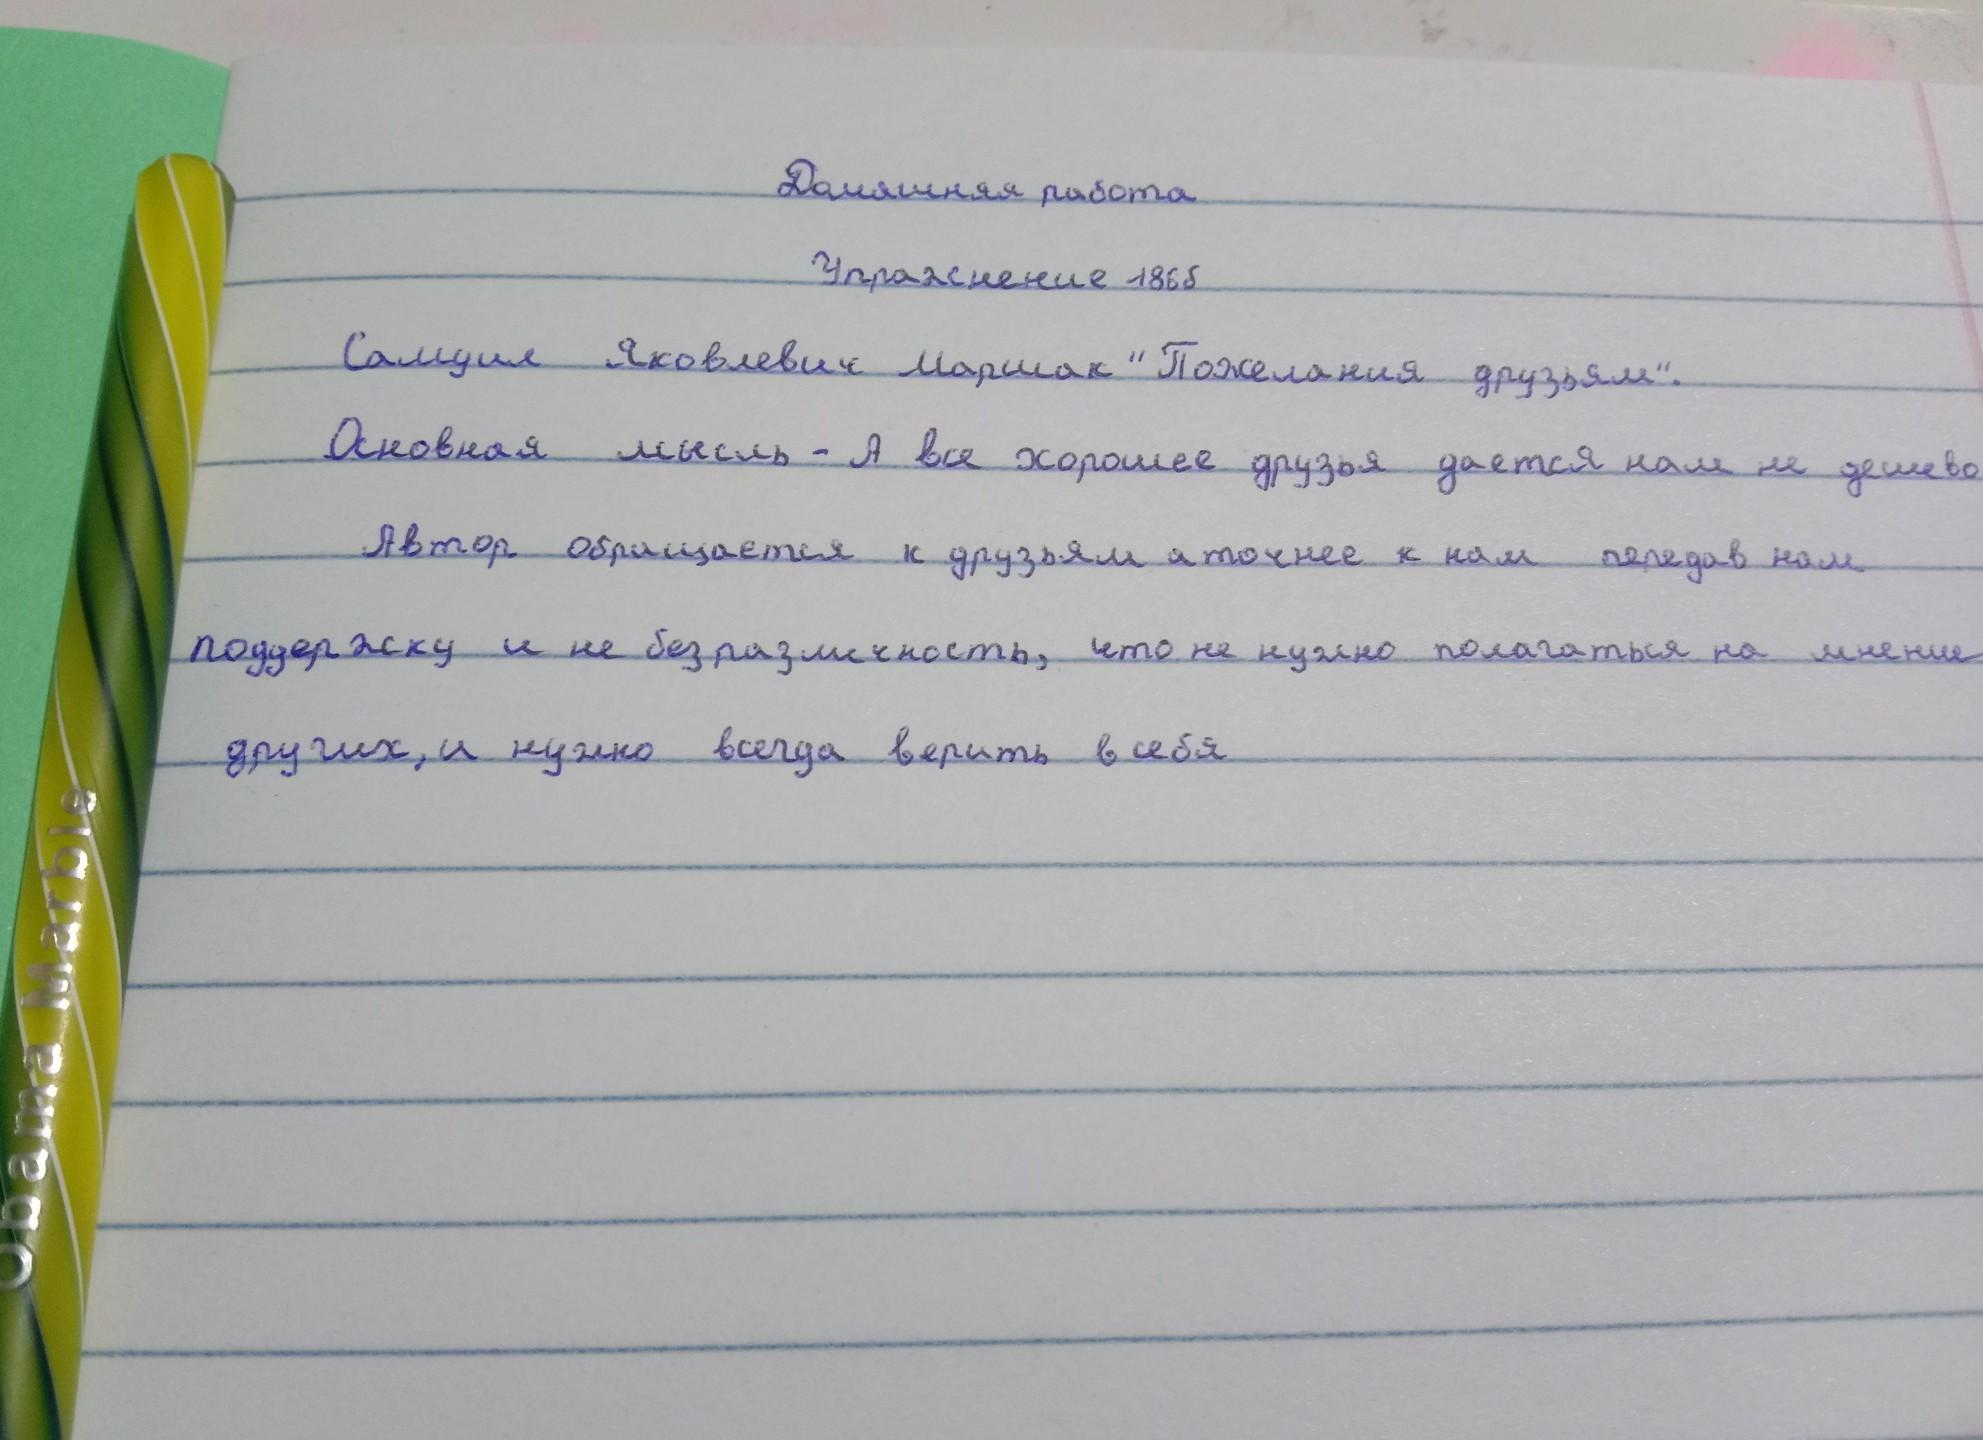 Домашняя работа
Упражнение 186б
Самуил Яковлевич Маршак "Пожелания друзьям".
Основная мысль - А все хорошее друзья дается нам не дешево
Автор обращается к друзьям а точнее к нам передав нам
поддержку и не безразличность, что не нужно полагаться на мнение
других, и нужно всегда верить в себя
Obama Marble